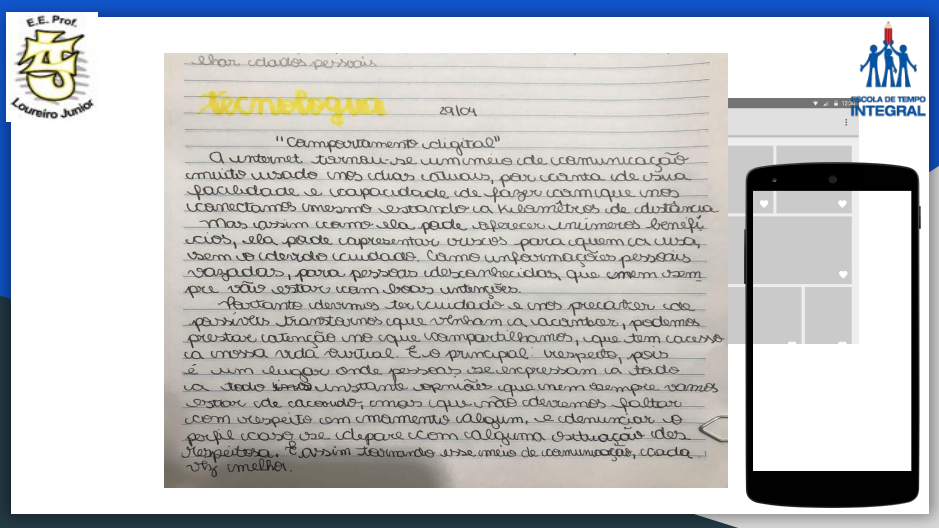 E.E. Prof.
Loureiro Junior
ESCOLA DE TEMPO
INTEGRAL
12:30
lhar dados pessoais
tecnologia
29/04
"Comportamento digital"
A internet tornou-se um meio de comunicação
muito usado nos dias atuais, por conta de sua
facilidade e capacidade de fazer com que nos
conectamos mesmo estando a kilomêtros de distância
Mas assim como ela pode oferecer inúmeros benefí
cios, ela pode apresentar riscos para quem a usa,
sem o devido cuidado. Como informações pessoais
vazadas, para pessoas desconhecidas, que nem sem
pre vão estar com boas intenções.
Portanto devemos ter cuidado e nos precaver de
possíveis transtornos que venham a acontecer, podemos
prestar atenção no que compartilhamos, que tem acesso
a nossa vida virtual. E o principal respeito, pois
é um lugar onde pessoas se expressam a todo
a todo instante opniões que nem sempre vamos
estar de acordo, mas que não devemos faltar
com respeito em momento algum, e denunciar o
perfil caso se depare com alguma situação des
respeitosa. E assim tornando esse meio de comunicação, cada
vez melhor.